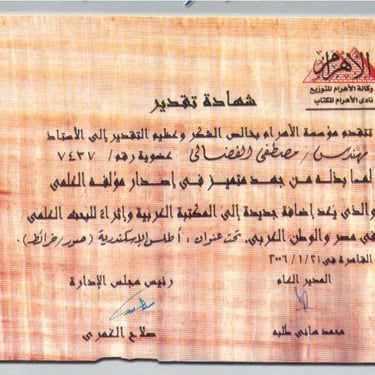 الأهرام
وكالة الأهرام للتوزيع
نادى الأهرام للكتاب
شهادة تقدير
تتقدم مؤسسة الأهرام بخالص الشكر وعظيم التقدير إلى الأستاذ
مهندس / مصطفى الفضالى عضوية رقم / ٧٤٣٧
لما بذله من جهد متميز فى إصدار مؤلفه العلمى
والذى يعد إضافة جديدة إلى المكتبة العربية وإثراء للبحث العلمى
فى مصر والوطن العربى. تحت عنوان : أطلس الإسكندرية (صور/خرائط).
القاهرة فى ٢٠٠٦/١/٢١
المدير العام
رئيس مجلس الإدارة
محمد هانى طلبه
صلاح الغمرى